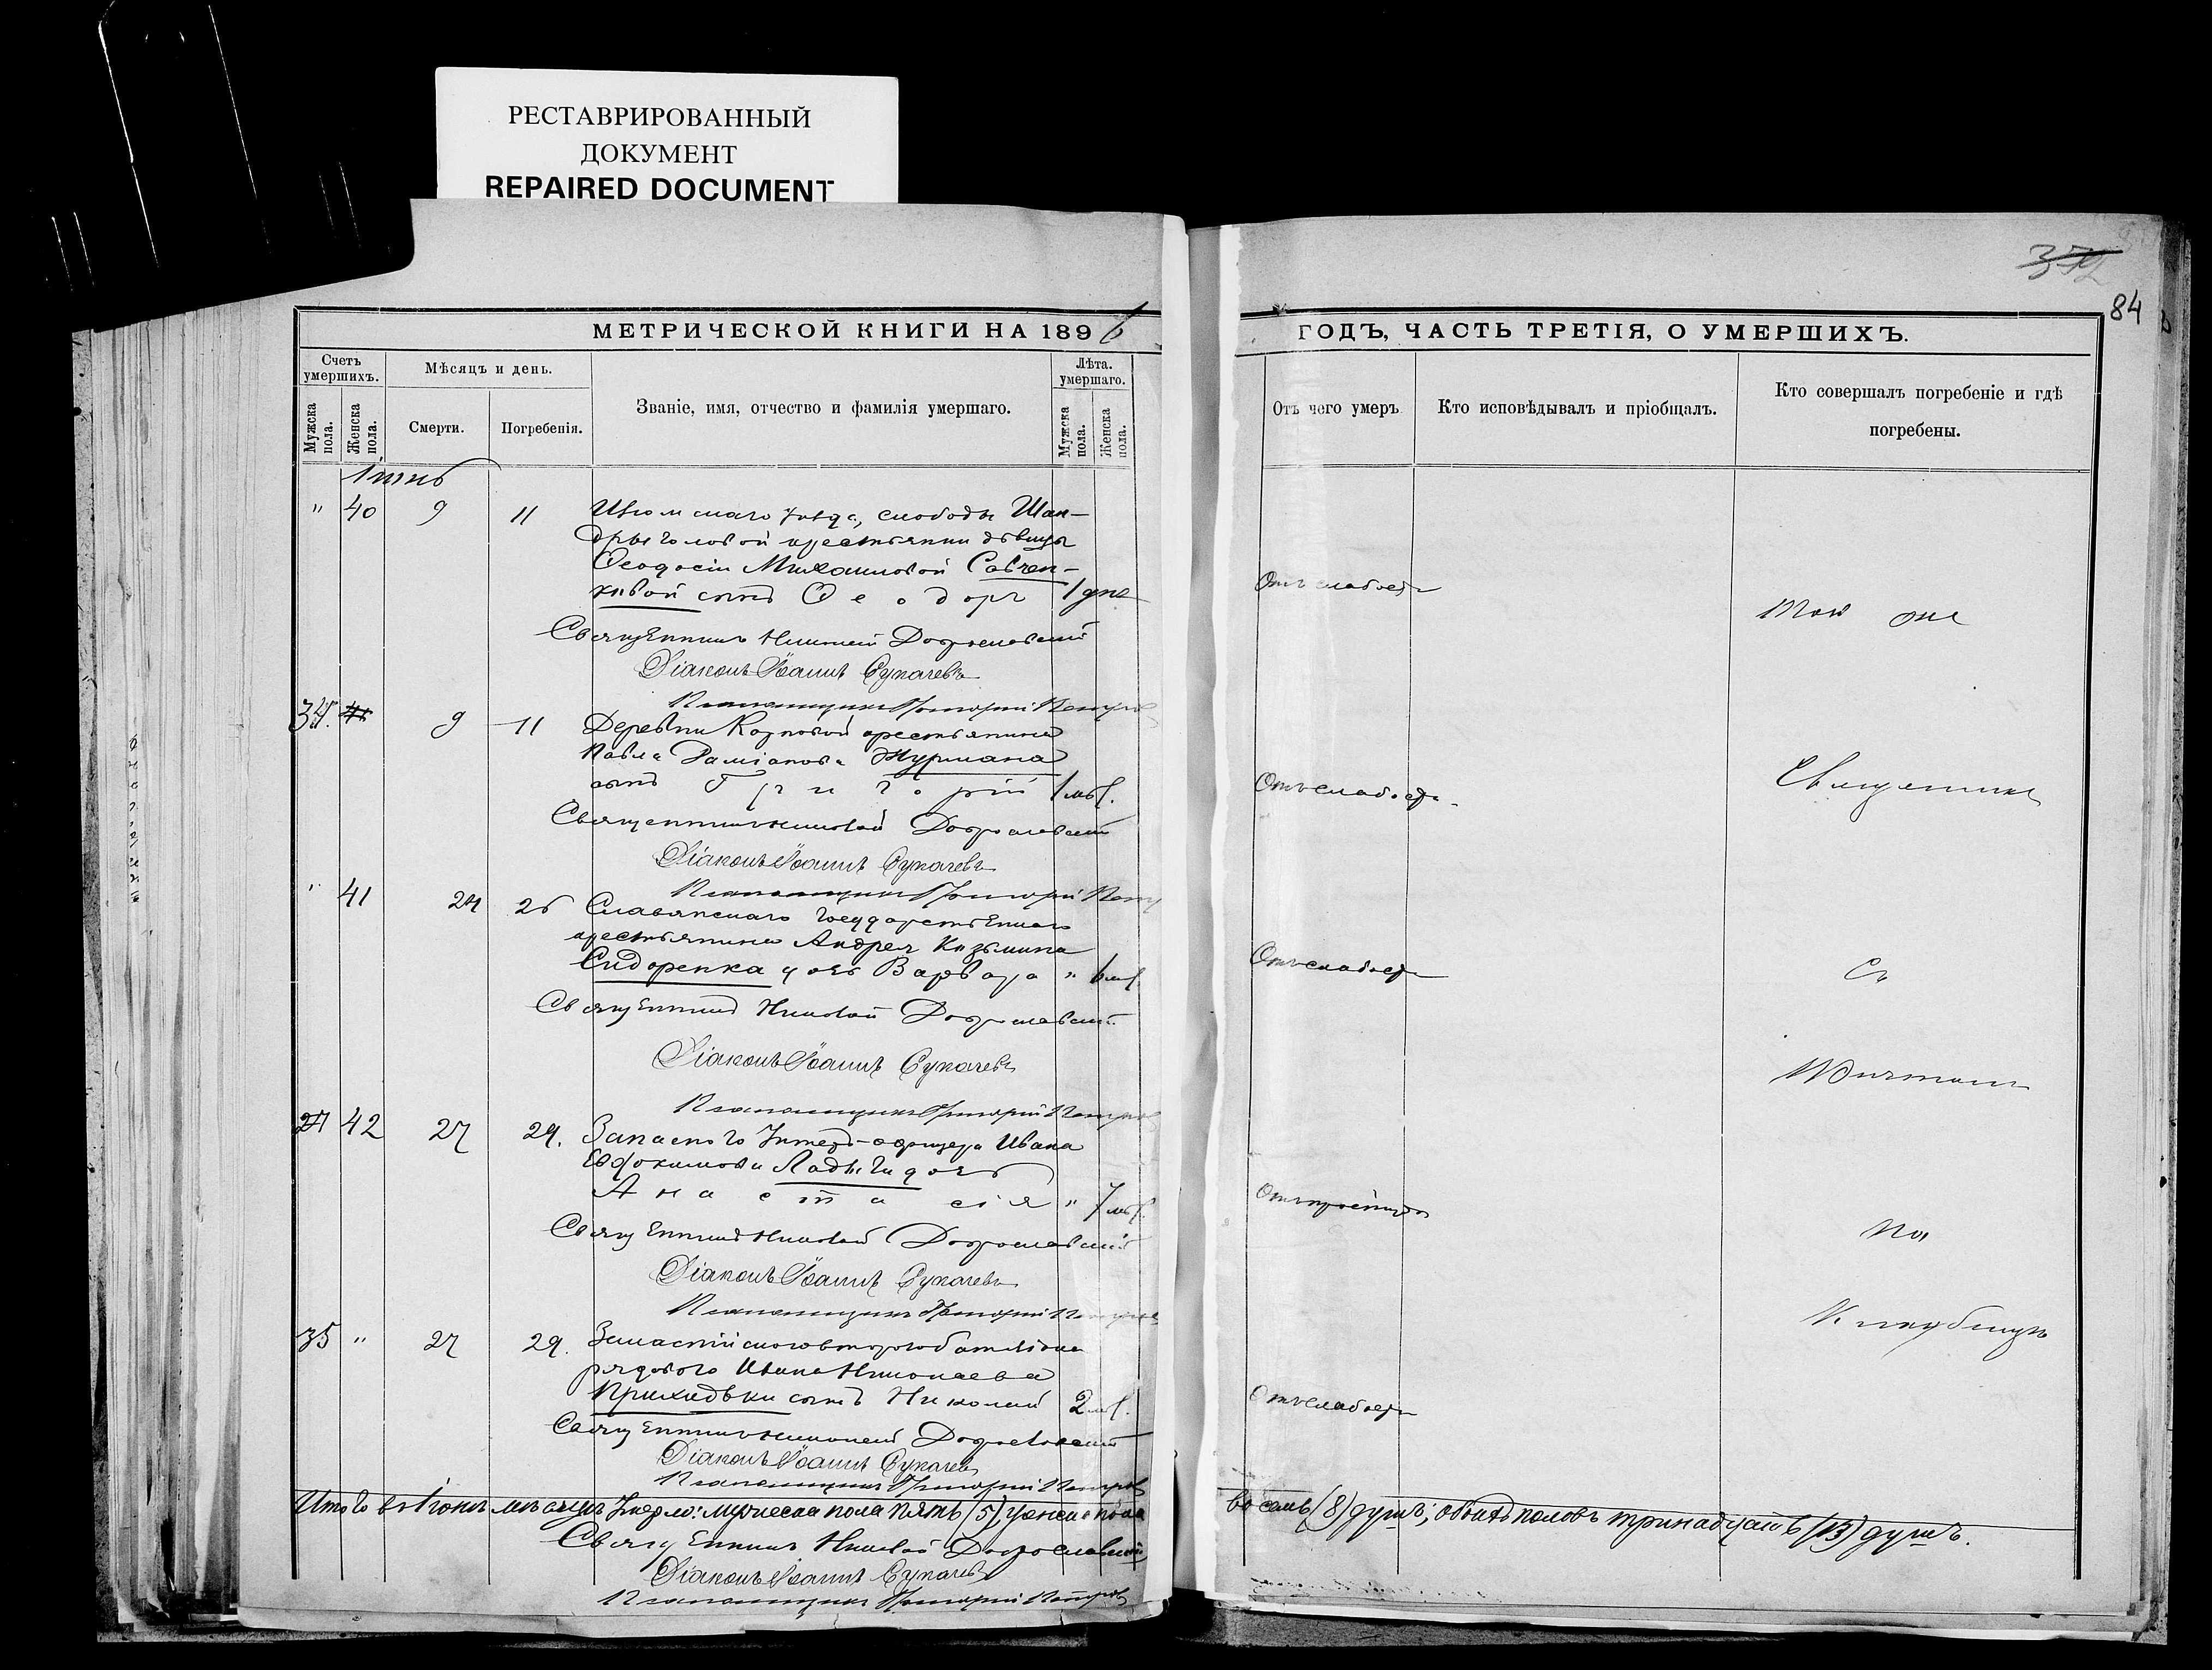 РЕСТАВРИРОВАННЫЙ
ДОКУМЕНТ
REPAIRED DOCUMENT
372
84
МЕТРИЧЕСКОЙ КНИГИ НА 1896 ГОДЪ, ЧАСТЬ ТРЕТІЯ, О УМЕРШИХЪ.
Счетъ умершихъ.
Мужска пола.
Женска пола.
Мѣсяцъ и день.
Смерти.
Погребенія.
Званіе, имя, отчество и фамилія умершаго.
Лѣта. умершаго.
Мужска пола.
Женска пола.
Отъ чего умеръ
Кто исповѣдывалъ и пріобщалъ.
Кто совершалъ погребеніе и гдѣ
погребены.
Іюнь
" 40 9 11 Изюмскаго уѣзда, слободы Шан-
дрыголовой крестьянки дѣвицы
Ѳеодосіи Михаиловой Савчен-
ковой сынъ Ѳеодоръ 1 дня Отъ слабости
Тотъ же
Священникъ Николай Доброславскій
Діаконъ Іоаннъ Сукачевъ
Псаломщикъ Григорій Петров
34. 9 11 Деревни Карповой крестьянина
Павла Даміанова Журмана
сынъ Григорій 1 мѣс. Отъ слабости
Священникъ
Священникъ Николай Доброславскій
Діаконъ Іоаннъ Сукачевъ
Псаломщикъ Григорій Петр
" 41 24 26 Славянскаго государственнаго
крестьянина Андрея Козьмина
Сидоренка дочь Варвара " 6 мѣс. Отъ слабости
Съ
Священникъ Николай Доброславскій
Діаконъ Іоаннъ Сукачевъ
Причтомъ
Псаломщикъ Григорій Петров
42 27 29. Запаснаго Унтеръ-офицера Ивана
Евдокимова Ладыги дочь
Анастасія " 7 мѣс.
На
Священникъ Николай Доброславскій
Діаконъ Іоаннъ Сукачевъ
Псаломщикъ Григорій Петров
Кладбищѣ
35 " 27 29. втораго баталіона
рядоваго Ивана Николаева
Приходьки сынъ Николай 2 мѣс. Отъ слабости
Священникъ Николай Доброславскій
Діаконъ Іоаннъ Сукачевъ
Псаломщикъ Григорій Петров
Итого въ Іюнѣ мѣсяцѣ умерло: мужеска пола пять (5), женска пола восемь (8) душъ; обоихъ половъ тринадцать (13) душъ.
Священникъ Николай Доброславскій
Діаконъ Іоаннъ Сукачевъ
Псаломщикъ Григорій Петровъ